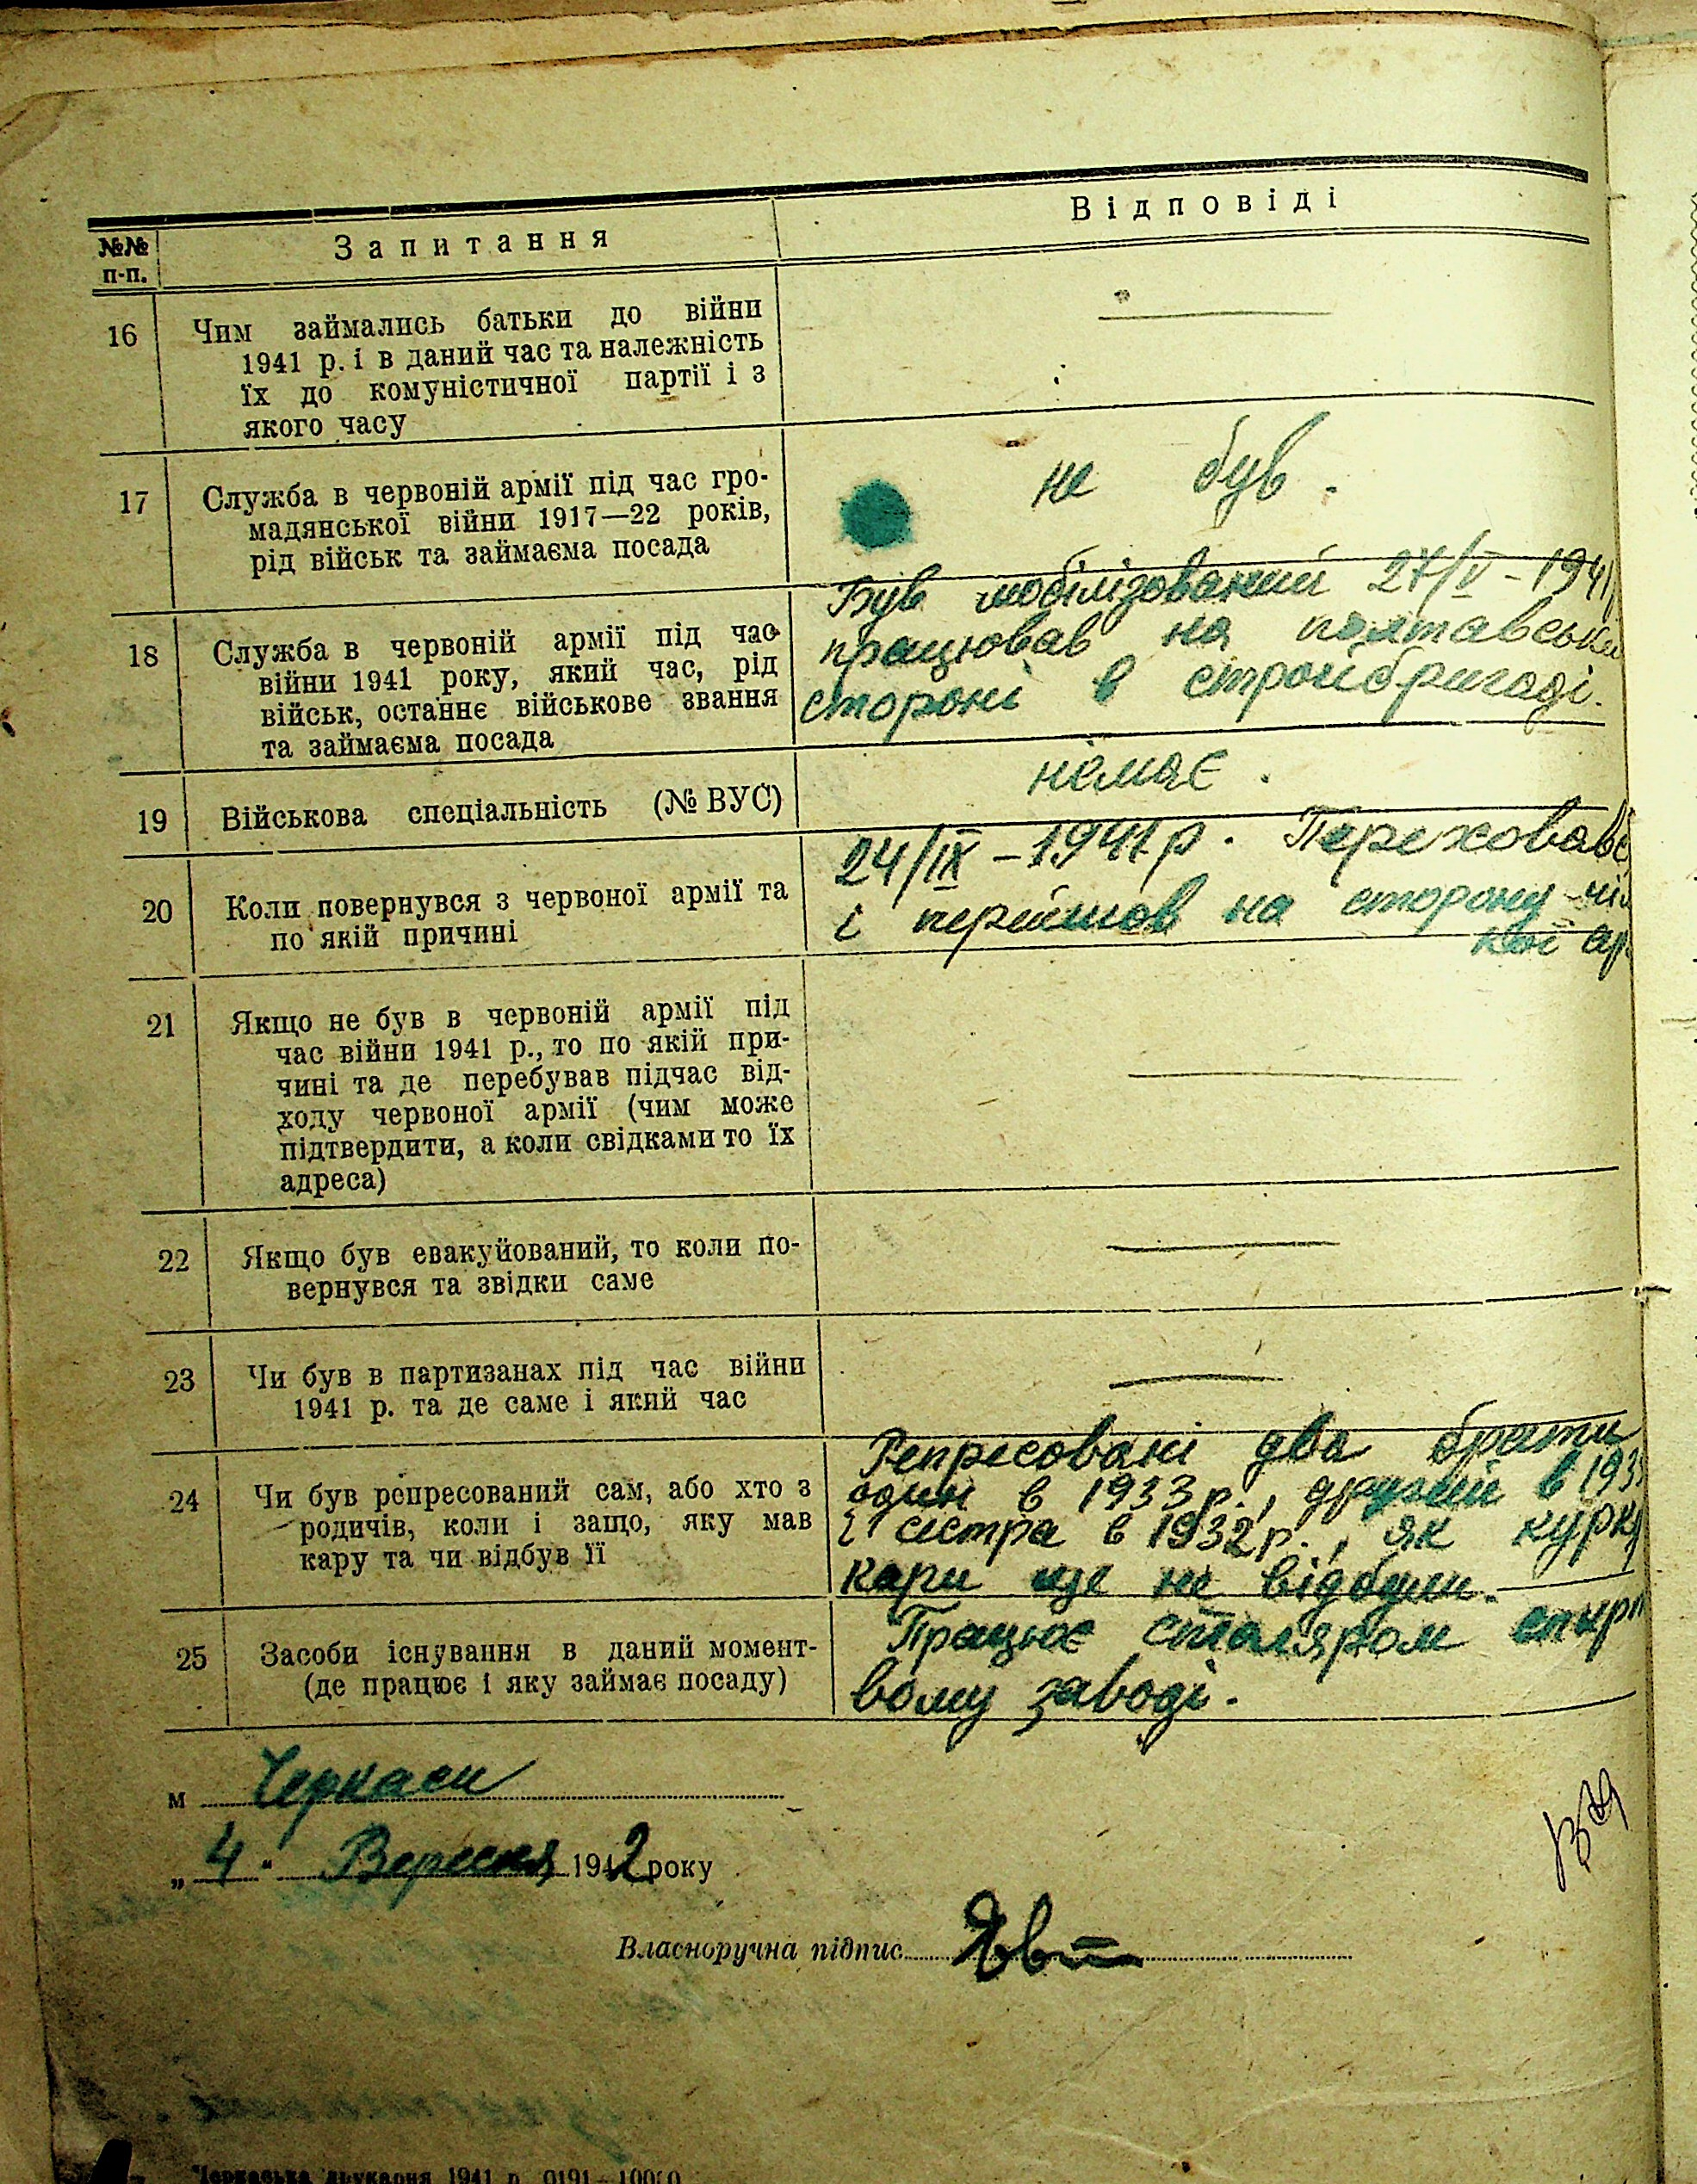 №№ п-п.
Запитання
Відповіді
16
Чим займались батьки до війни
1941 р. і в даний час та належність
їх до комуністичної партії і з
якого часу
17
Служба в червоній армії під час гро-
мадянської війни 1917—22 років,
рід військ та займаєма посада
не був.
18
Служба в червоній армії під час
війни 1941 року, який час, рід
військ, останнє військове звання
та займаєма посада
Був мобілізований 27/V-1941
працював на полтавській
стороні в стройбригаді.
19
Військова спеціальність (№ ВУС)
немає.
20
Коли повернувся з червоної армії та
по якій причині
24/IX – 1941 р. Переховавс
і перейшов на сторону
кої ар
21
Якщо не був в червоній армії під
час війни 1941 р., то по якій при-
чині та де перебував підчас від-
ходу червоної армії (чим може
підтвердити, а коли свідками то їх
адреса)
22
Якщо був евакуйований, то коли по-
вернувся та звідки саме
23
Чи був в партизанах під час війни
1941 р. та де саме і який час
24
Чи був репресований сам, або хто з
родичів, коли і защо, яку мав
кару та чи відбув її
Репресовані два брати
один в 1933 р., другий в 193
і сестра в 1932 р., як курк
кари ще не відбули.
25
Засоби існування в даний момент-
(де працює і яку займає посаду)
Працює столяром спирт
вому заводі.
м Черкаси
„4" Вересня 1942 року
Власноручна підпис
Черкаська друкарня 1941 р. 0191—10000